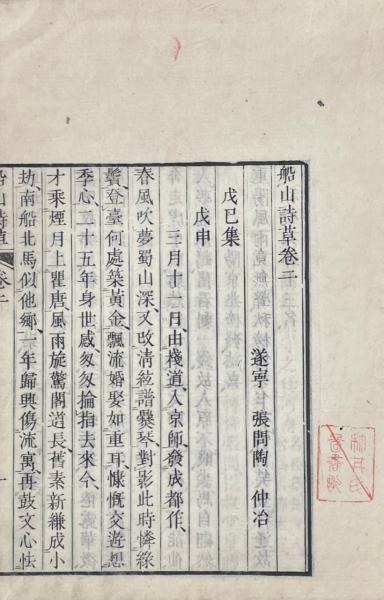 船山詩草卷二
遂寧 張問陶 仲冶
戊巳集
戊申
三月十一日由棧道入京師發成都作
春風吹夢蜀山深又改清絃譜爨琴對影此時憐綠
鬢登臺何處築黃金飄流婚娶如重耳慷慨交遊想
季心二十五年身世感匆匆掄指去來今
才乘煙月上瞿唐風雨旋驚閣道長舊素新縑成小
劫南船北馬似他鄉一年歸興傷流寓再鼓文心怯
船山詩草 卷二 一